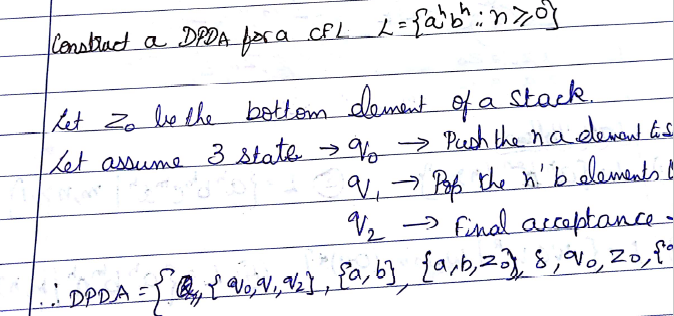 Construct a DPDA for a CFL L = {aⁿbⁿ : n ≥ 0}
Let Z₀ be the bottom element of a stack.
Let assume 3 state → q₀ → Push the n a element to s
q₁ → Pop the n 'b elements
q₂ → Final acceptance
∴ DPDA = { {q₀, q₁, q₂}, {a, b}, {a, b, z₀}, δ, q₀, z₀, {